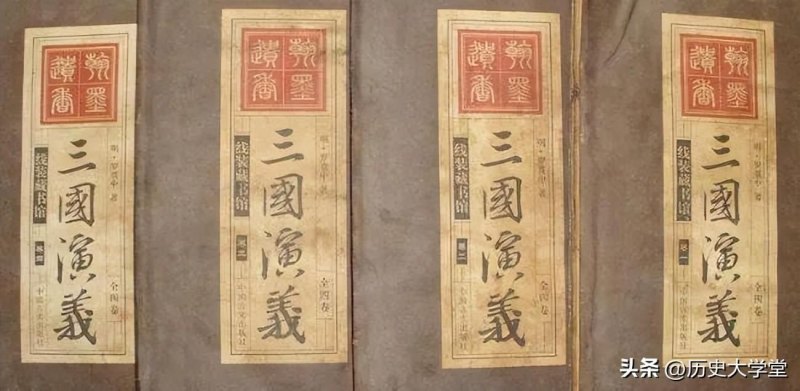 翰墨
遺香
明·罗贯中 著
三國演義
线装藏书馆
卷四
全四卷
翰墨
遺香
明·罗贯中 著
三國演義
线装藏书馆
卷三
全四卷
翰墨
遺香
明·罗贯中 著
三國演義
线装藏书馆
卷二
全四卷
翰墨
遺香
明·罗贯中 著
三國演義
线装藏书馆
卷一
全四卷
头条 @历史大学堂